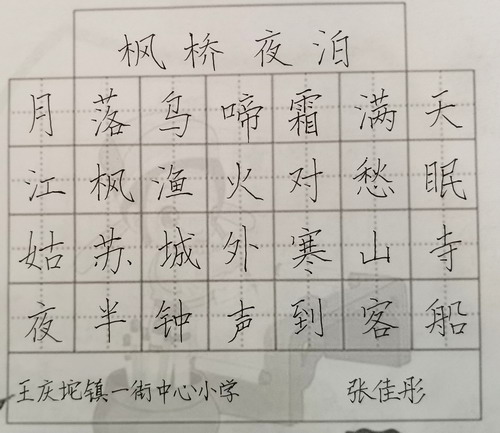 枫桥夜泊
月落鸟啼霜满天
江枫渔火对愁眠
姑苏城外寒山寺
夜半钟声到客船
王庆坨镇一街中心小学 张佳彤